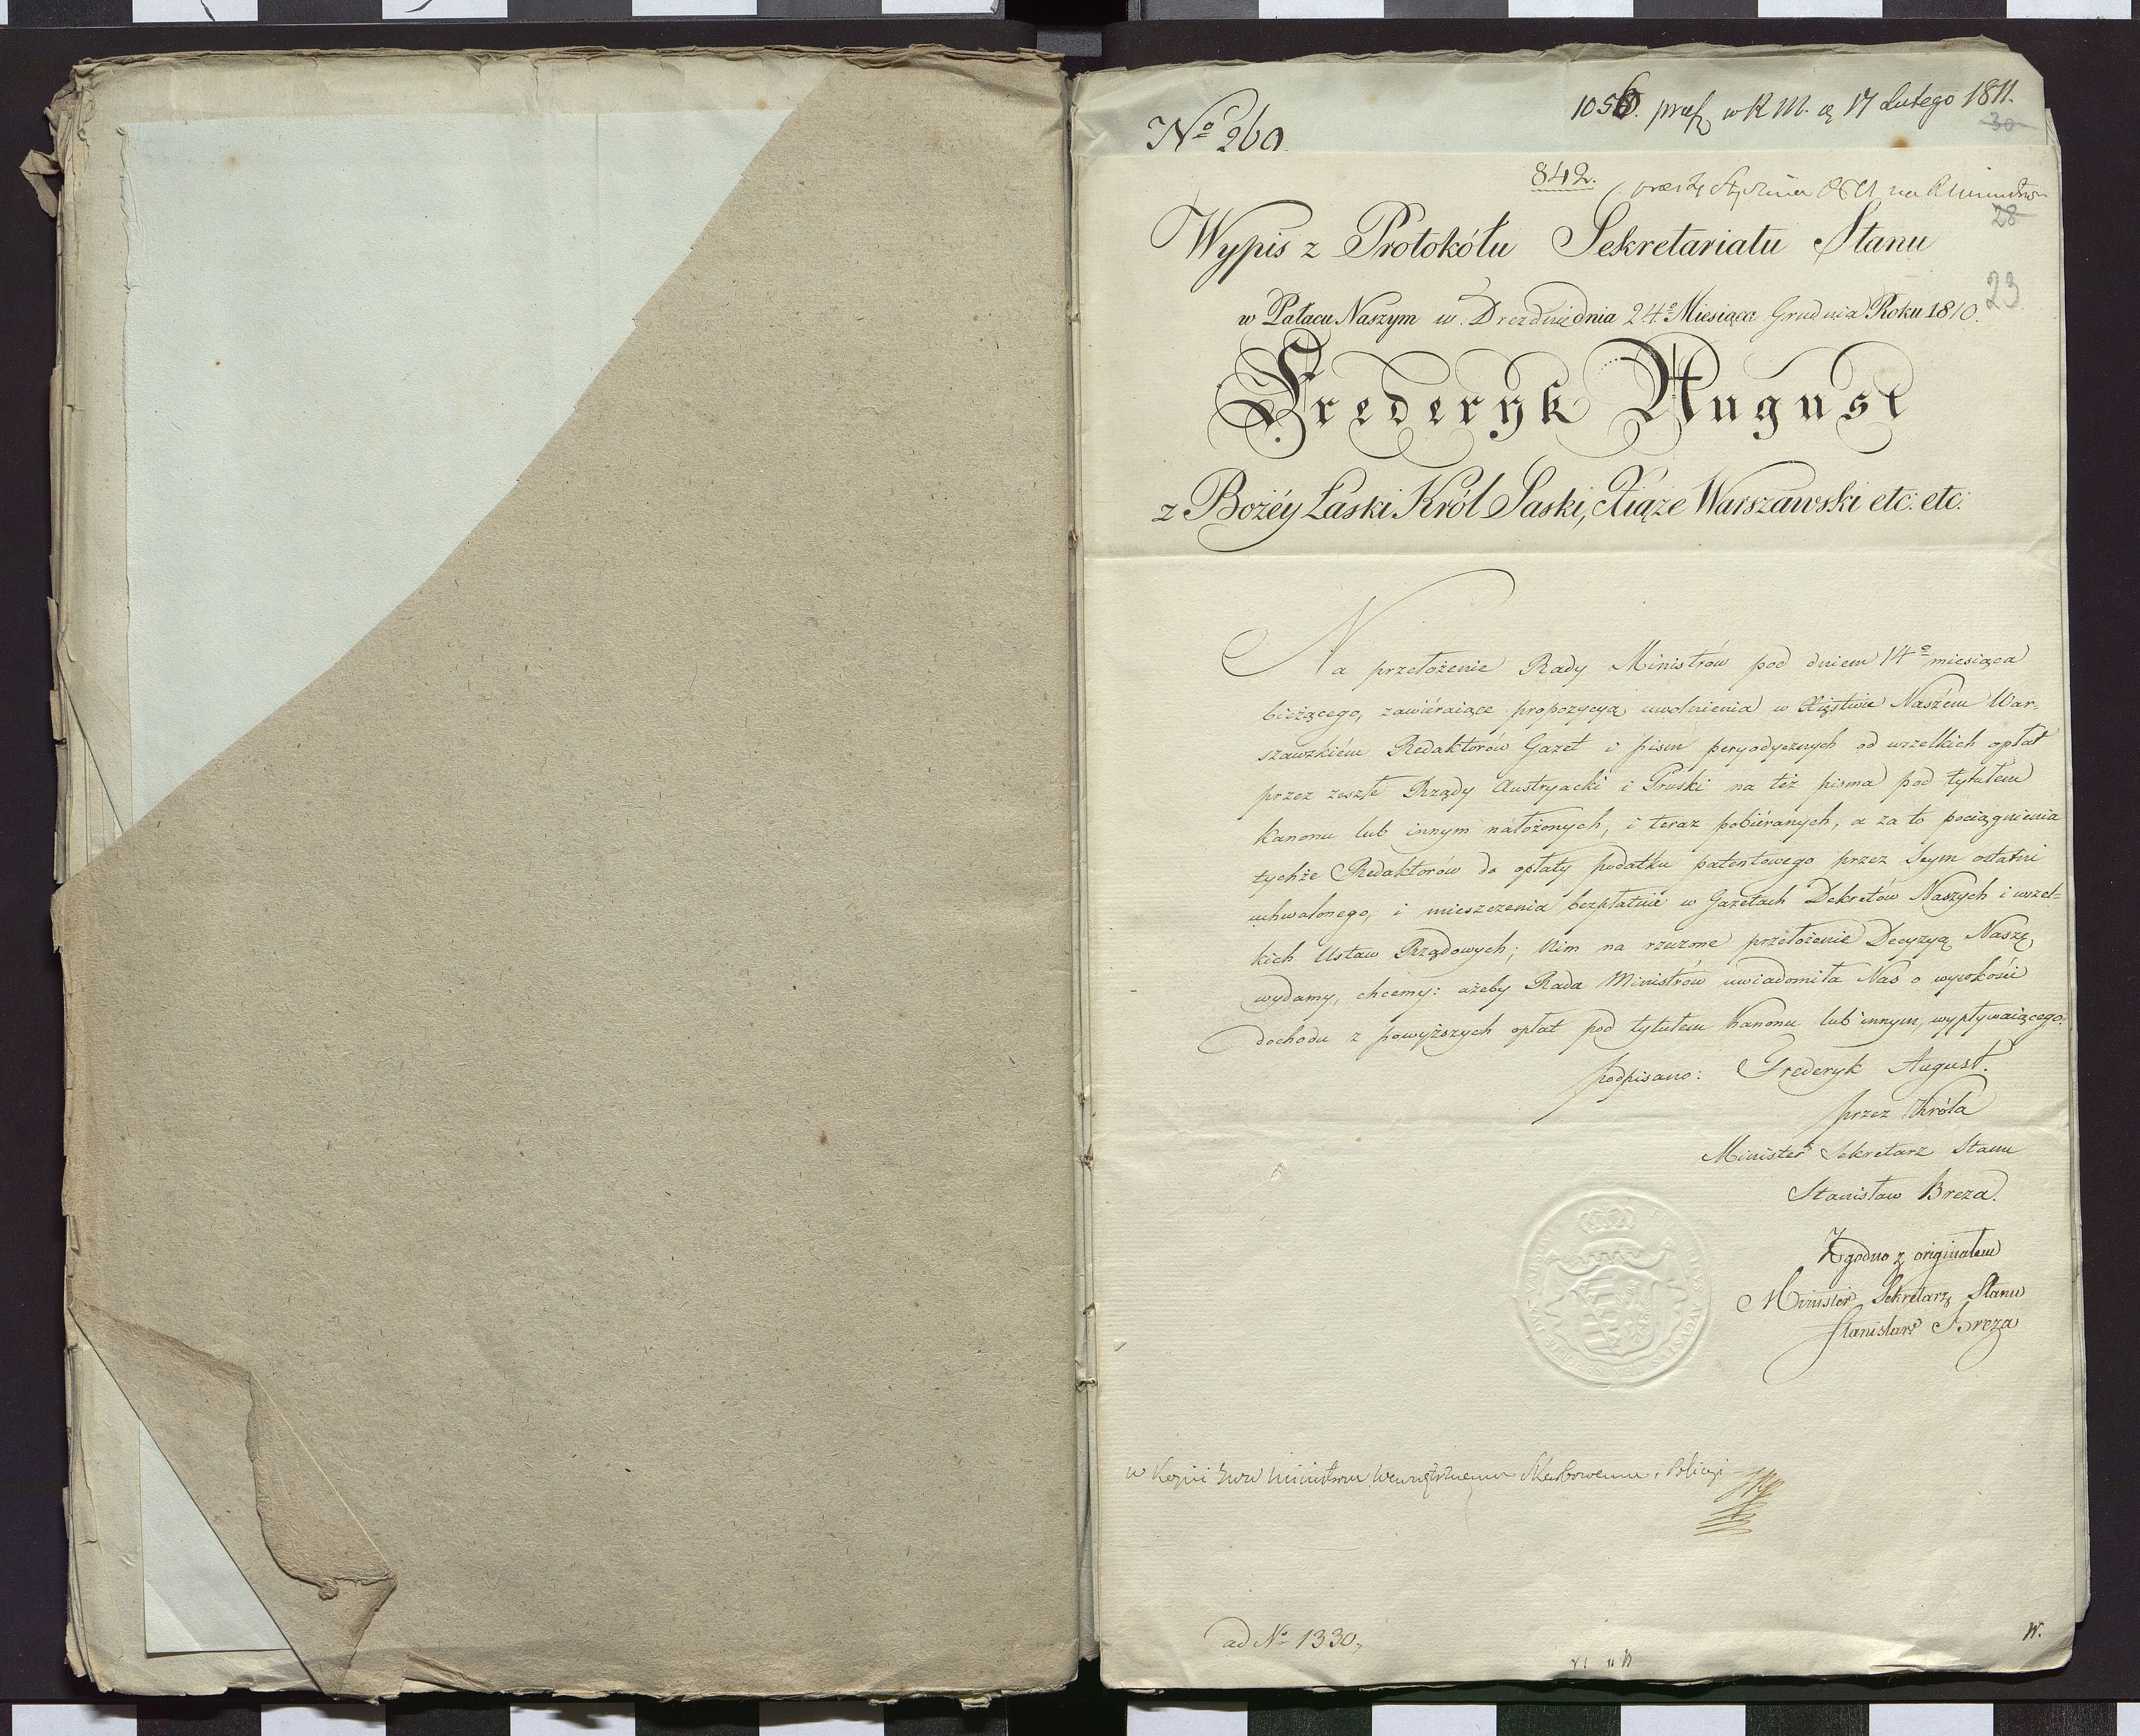 No 260.
1056. præs. w R M. d. 17 Lutego 1811.
30
842.
28
Wypis z Protokółu Sekretariatu Stanu
23
w Pałacu Naszym w Dreznie dnia 24o Miesiąca Grudnia Roku 1810.
Frederyk August
z Bożéy Łaski Król Saski, Xiąże Warszawski etc: etc:
Na przełożenie Rady Ministrów pod dniem 14o miesiąca
bieżącego, zawiéraiące propozycyą uwolnienia w Xięstwie Naszém War-
szawskiém Redaktorów Gazet i pism peryodycznych od wszelkich opłat
przez zeszłe Rządy Austryacki i Pruski na też pisma pod tytułem
Kanonu lub innym nałożonych, i teraz pobiéranych, a za to pociągnienia
tychże Redaktorów do opłaty podatku patentowego przez Seym ostatni
uchwalonego, i mieszczenia bezpłatnie w Gazetach Dekretów Naszych i wszel-
kich Ustaw Rządowych; Nim na rzeczone przełożenie Decyzyą Naszą
wydamy, chcemy: ażeby Rada Ministrów uwiadomiła Nas o wysokości
dochodu z powyższych opłat pod tytułem Kanonu lub innym, wypływaiącego.
podpisano: Frederyk August.
przez Króla
Minister Sekretarz Stanu
Stanisław Breza.
Zgodno z originałem
Minister Sekretarz Stanu
Stanisław Breza
w Kopii Ministrom Wewnętrznemu Skarbowemu i Policyi
ad No 1330.
W.